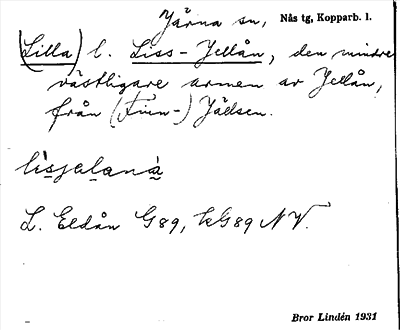 Järna sn, Nås tg, Kopparb. l.
(Lilla) l. Liss-Jellån, den mindre
västligare armen av Jellån,
från (Finn-) Jällsen.
lisjelaná
L. Eldån G89, kG89 NV.
Bror Lindén 1931